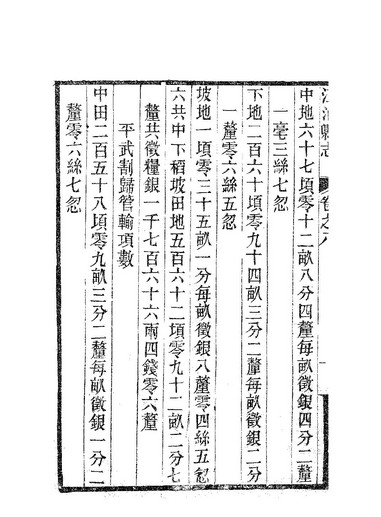 江油縣志　卷之八
中地六十七頃零十二畝八分四釐每畝徵銀四分二釐
一毫三絲七忽
下地二百六十頃零九十四畝三分二釐每畝徵銀二分
一釐零六絲五忽
坡地一頃零三十五畝一分每畝徵銀八釐零四絲五忽
六共中下稻坡田地五百六十二頃零九十二畝二分七
釐共徵糧銀一千七百六十六兩四錢零六釐
平武割歸管輸項數
中田二百五十八頃零九畝三分二釐每畝徵銀一分二
釐零六絲七忽